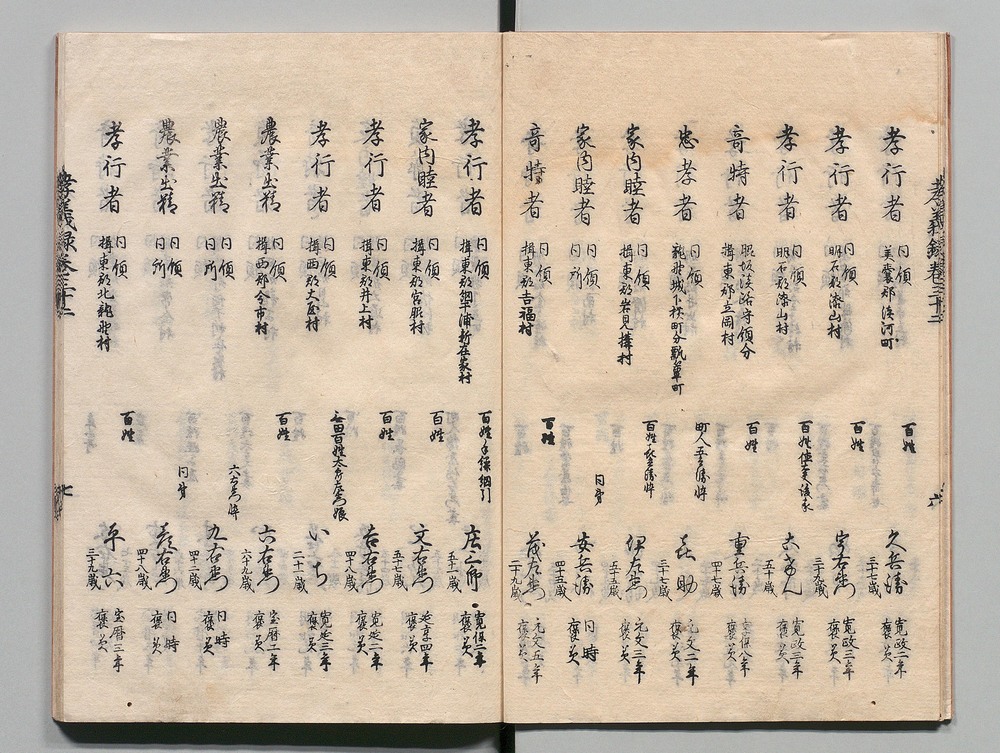 孝義録巻三十二
孝行者 同領 美嚢郡 河町 百姓 久兵衛 三十七歳 寛政二年 褒美
孝行者 同領 明石郡 山村 百姓 宇右衛門 三十九歳 寛政三年 褒美
孝行者 同領 明石郡 山村 百姓 後家 五十歳 寛政三年 褒美
奇特者 脇坂淡路守領分 揖東郡立岡村 百姓 重兵衛 四十七歳 享保八年 褒美
忠孝者 同領 龍野城下 町分 町 町人 兵衛忰 喜助 三十七歳 元文二年 褒美
家内睦者 同領 揖東郡岩見構村 百姓 兵衛忰 伊左衛門 五十五歳 元文三年 褒美
家内睦者 同領 同所 同身 安兵衛 四十五歳 同時 褒美
奇特者 同領 揖東郡吉福村 百姓 茂左衛門 二十九歳 元文五年 褒美
六
孝行者 同領 揖東郡網干浦新在家村 百姓 手繰網引 庄三郎 五十一歳 寛保二年 褒美
家内睦者 同領 揖東郡宮脇村 百姓 文右衛門 五十七歳 延享四年 褒美
孝行者 同領 揖東郡井上村 百姓 吉右衛門 四十八歳 寛延二年 褒美
孝行者 同領 揖西郡大 村 無田百姓太郎左衛門娘 いち 二十一歳 寛延三年 褒美
農業出精 同領 揖西郡今市村 百姓 六右衛門 六十九歳 宝暦二年 褒美
農業出精 同領 同所 六右衛門忰 九右衛門 四十二歳 同時 褒美
農業出精 同領 同所 同身 彦右衛門 四十八歳 同時 褒美
孝行者 同領 揖東郡北龍野村 百姓 平六 三十九歳 宝暦三年 褒美
孝義録巻三十二
七